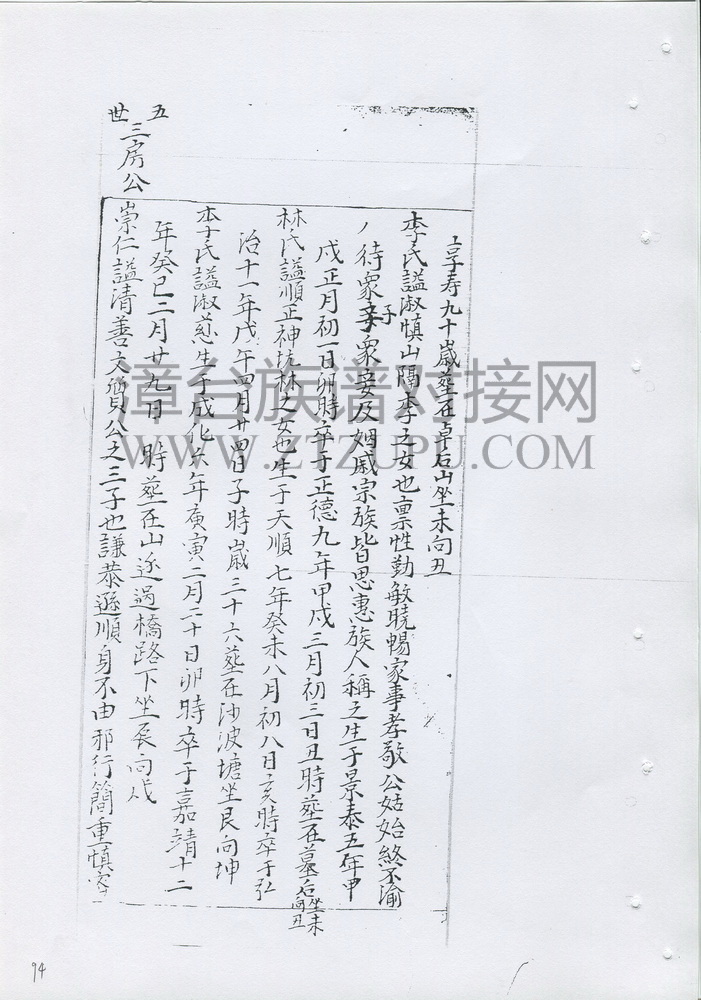 享寿九十歲塟在卓石山坐未向丑
李氏謚淑慎山隔李之女也禀性勤敏曉暢家事孝敬公姑始終不渝
待眾子眾妾及姻戚宗族皆思惠族人稱之生于景泰五年甲
戌正月初一日卯時卒于正德九年甲戌三月初三日丑時塟在墓右坐未向丑
林氏謚順正神坑林之女也生于天順七年癸未八月初八日亥時卒于弘
治十一年戊午四月廿四日子時歲三十六塟在沙波塘坐艮向坤
李氏謚淑慈生于成化六年庚寅二月二十日卯時卒于嘉靖十二
年癸巳二月廿九日 時塟在山 過橋路下坐辰向戌
五世
三房公
崇仁謚清善文質公之三子也謙恭遜順身不由邪行簡重慎密
漳台族谱对接网
WWW.ZTZUPU.COM
94